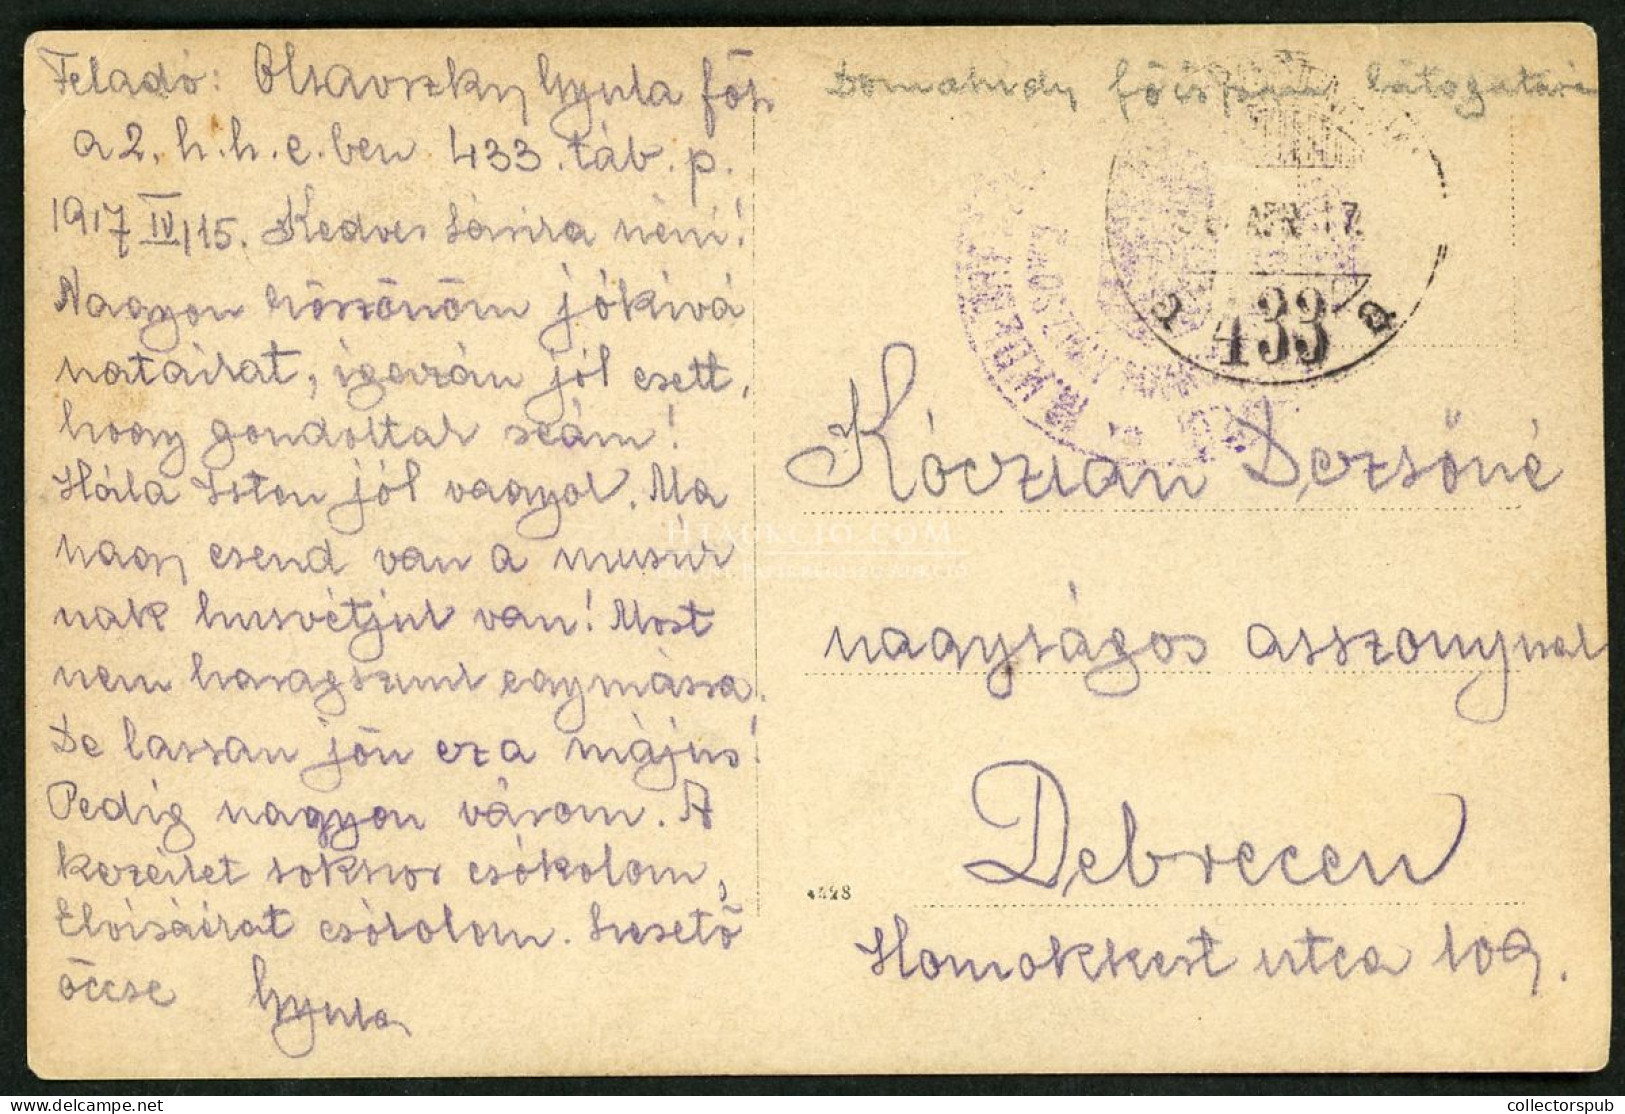 Feladó: Olsavszky Gyula főh
a 2. h. h. e. ben 433. táb. p.
1917 IV/15. Kedves Sárira néni!
Nagyon köszönöm jókivá
natairat, igazán jól esett,
hogy gondoltar reám!
Hála Isten jól vagyok. Ma
nagy csend van a muszur
nak husvétjuk van! Most
nem haragszunk egymásra.
De lassan jön ez a május!
Pedig nagyon várom. A
kezeilet sokszor csókolom,
Elvisáirat csókolom. Szerető
öccse Gyula
Domahidy főispán látogatása
APR 17
a 433 a
Kóczián Dezsőné
nagyságos asszonynak
Debrecen
Homokkert utca 109.
4428
HTAUKCIO.COM
collectorspub